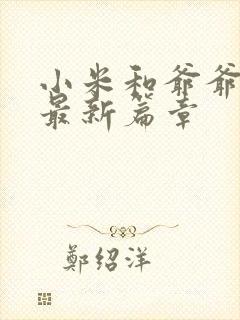 小米和爷爷
最新篇章
鄭绍洋